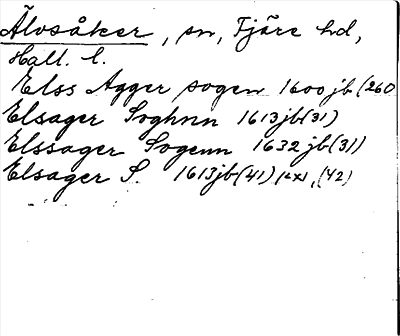 Älvsåker, sn, Fjäre hd,
Hall. l.
Elss Agger sogen 1600 jb (260
Elsager Soghnn 1613 jb (31)
Elssager Sogenn 1632 jb (31)
Elsager S. 1613 jb (41) (2x), (42)